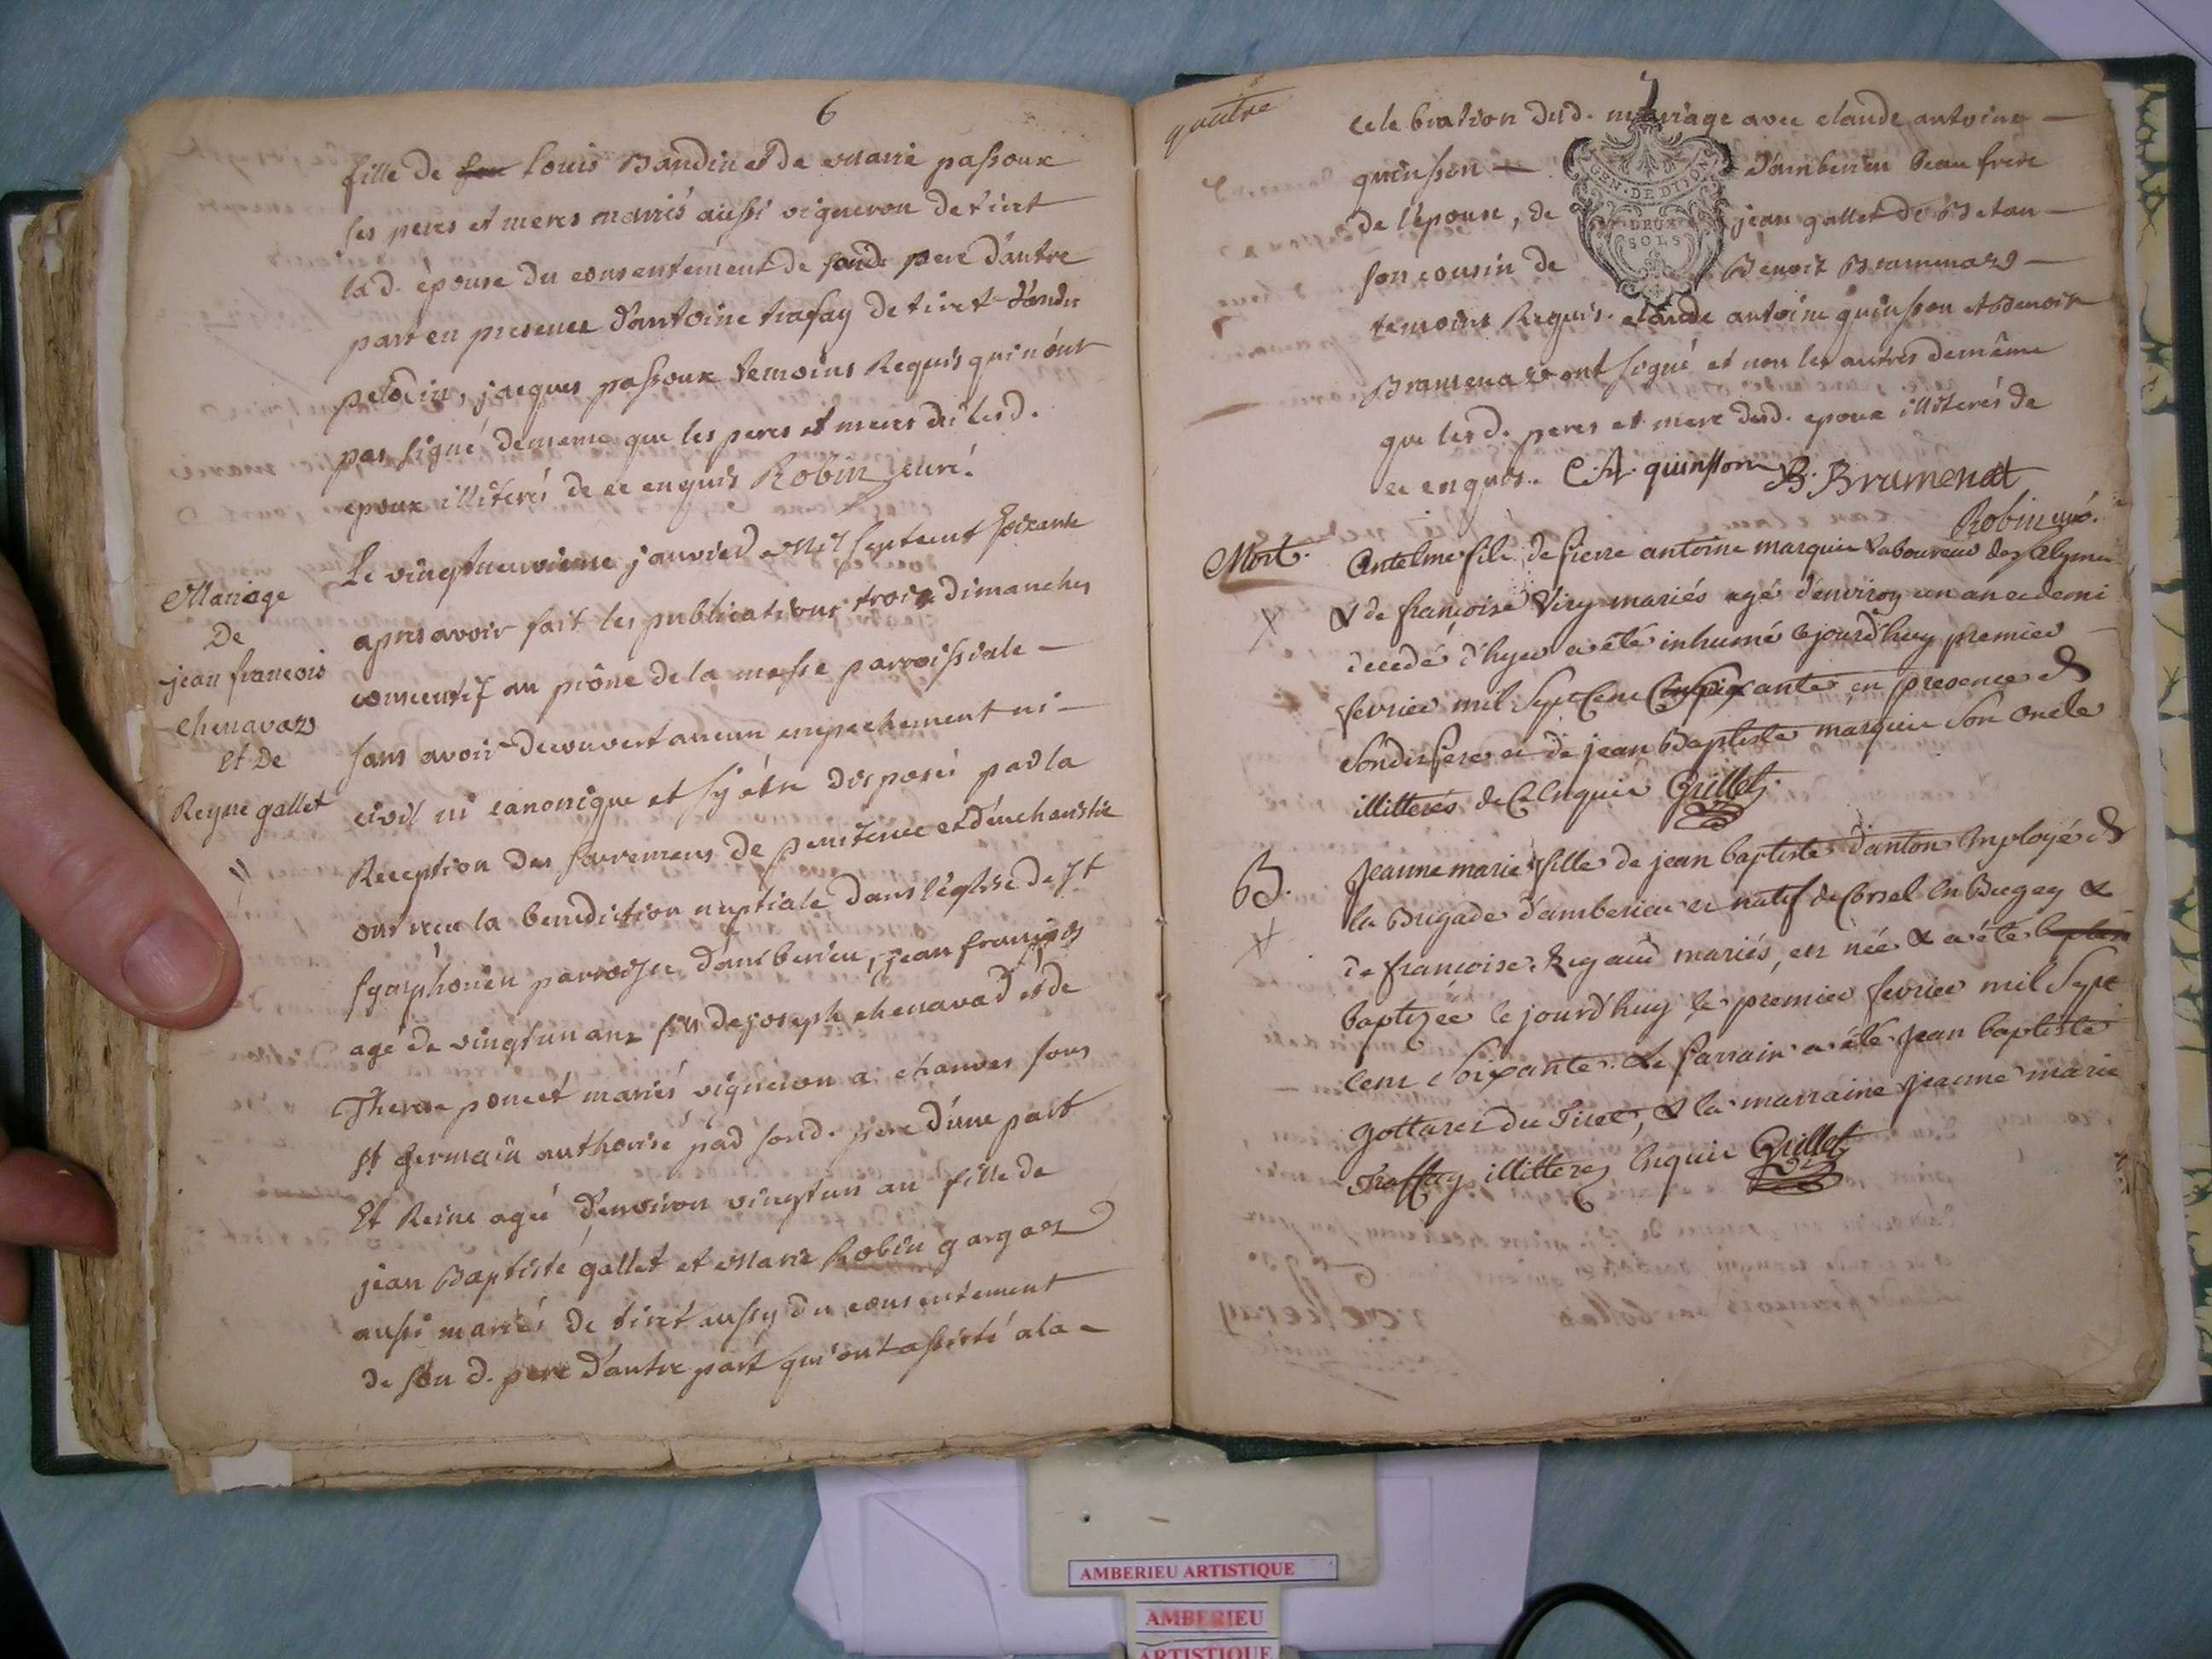 6
fille de feu Louis Bandin et de Marie passoux
ses peres et meres mariés aussi vigneron de tiret
lad. épouse du consentement de sond. pere d'autre
part en presence d'antoine trafay de tiret d'andré
petodin, jacques passoux temoins Requis qui n'ont
pas signé de meme que les peres et meres desd.
epoux illiterés de ce enquis Robin curé.
Mariage
De
jean francois
chenavaz
Et De
Reyne gallet
Le vingtneuvieme janvier Mil septcent soixante
apres avoir fait les publications trois dimanches
consecutif au prône de la messe parroissiale –
sans avoir decouvert aucun empechement ni –
civil ni canonique et s'y être disposés par la
Reception des sacremens de penitence et d'eucharistie
ont recu la benediction nuptiale dans l'église de St
symphorien parroisse d'amberieu, jean françois
agé de vingt un ans fils de joseph chenavad et de
Therese poncet mariés vigneron a chauves sous
St Germain authorisé par sond. pere d'une part
Et Reine agée d'environ vingt un an fille de
jean Baptiste gallet et Marie Robin gargaz
aussi mariés de tiret aussy du consentement
de son d. pere d'autre part qui ont assisté a la –
quatre
7
celebration dud. mariage avec claude antoine –
quinson – d'amberieu beau frere
de l'epouse, de jean gallet de Betan –
son cousin de Benoit Brammaz –
GEN. DE DIJON
DEUX
SOLS
temoins Requis. claude antoine quinson et Benoit
Bramenaz ont signé et non les autres de même
que lesd. peres et mere desd. epoux illiterés de
ce enquis. C. A. quinsson B. Bramenat
Robin curé.
Mort.
Antelme fils de pierre antoine marquis Laboureur des
& de françoise Viry mariés agé d'environ un an et demi
decedé d'hyer a été inhumé lejourd'huy premier
fevrier mil Sept Cent Soixante en presence de
Sondit pere et de jean Baptiste marquis Son oncle
illitterés de Ce Enquis Grillet
B.
Jeanne marie fille de jean baptiste d'anton Employé de
la Brigade d'amberieu et natif de Corsel en Bugey &
de françoise Rigaud mariés, est née & a été baptis
baptizée le jourd'huy le premier fevrier mil Sept
Cent Soixante. Le parrain a été jean baptiste
gottarer du Tiret, & la marraine jeanne marie
Traffay illitteres Enquis Grillet
AMBERIEU ARTISTIQUE
AMBERIEU
ARTISTIQUE